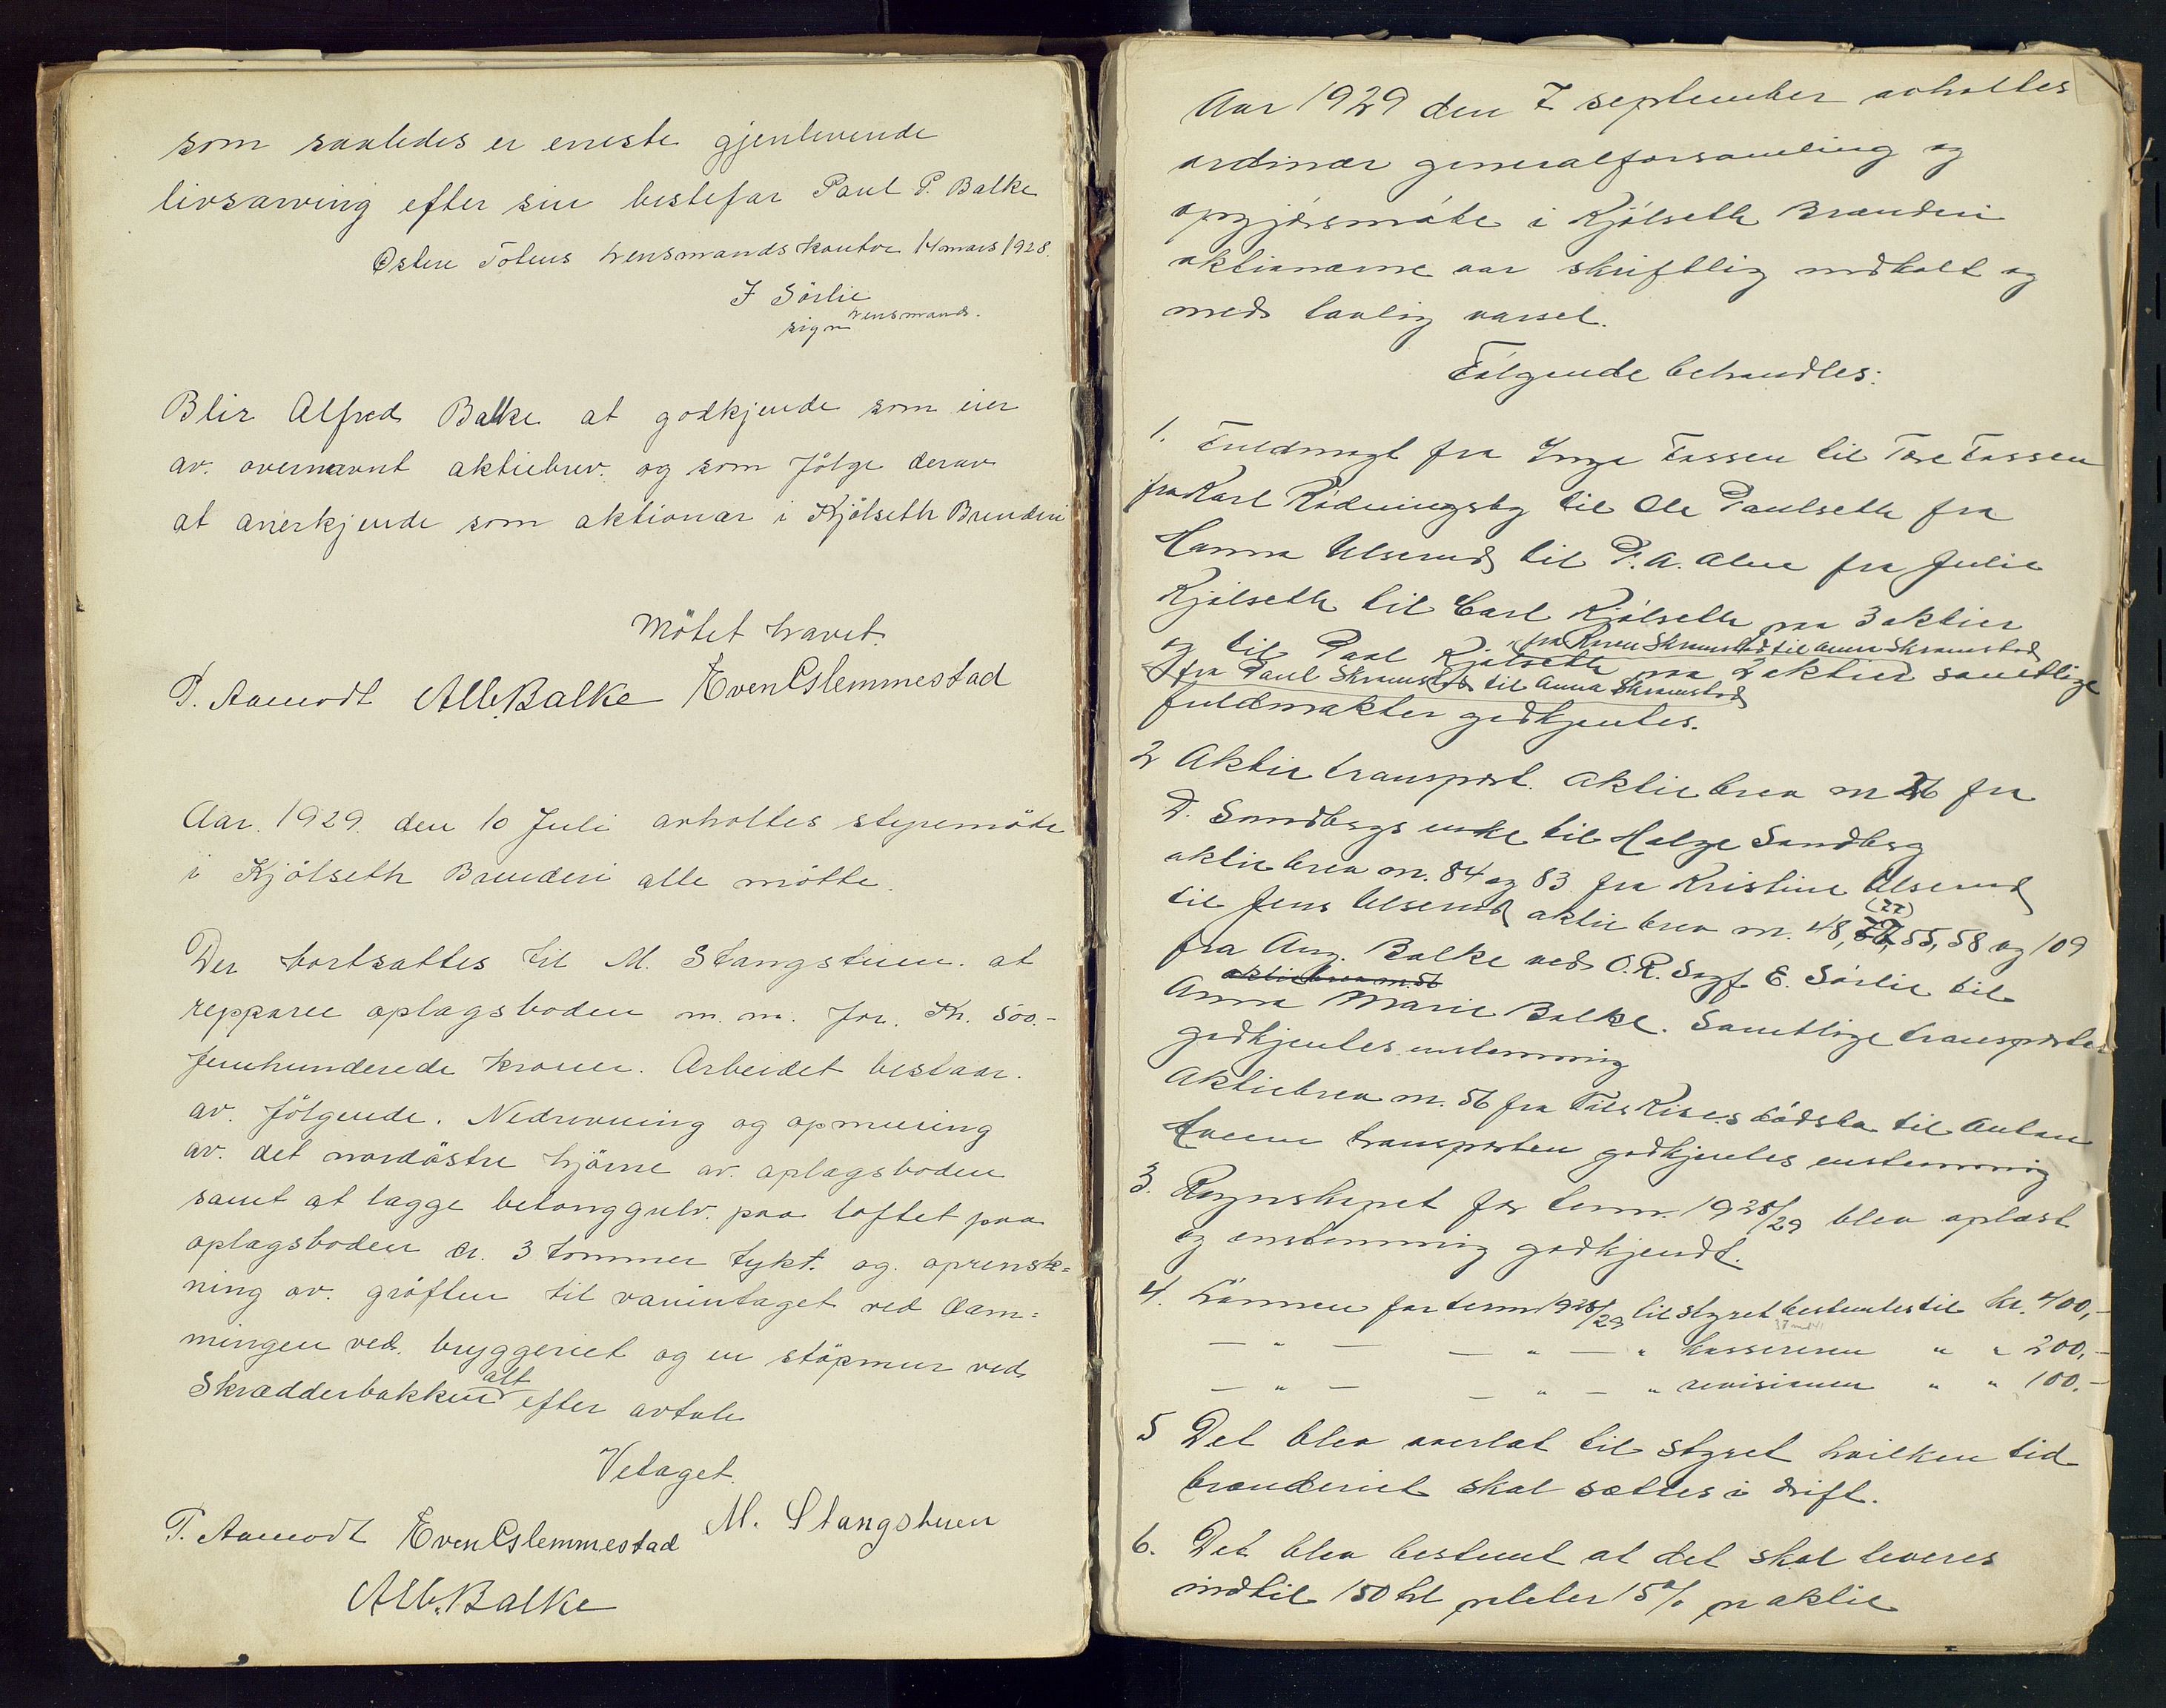 som saaledes er eneste gjenlevende
livsarving efter sin bestefar Paul P. Balke
Østre Totens Lensmandskontor 14 mars 1928.
J Sørlie
Lensmand.
sign
Blir Alfred Balke at godkjende som eier
av. overnævnt aktiebrev. og som følge derav
at anerkjende som aktionær i Kjölseth Brænderi
Mötet hævet.
P. Aamodt Alb. Balke Even Gslemmestad
Aar. 1929. den 10 Juli avholtes styremöte
i Kjölseth Brænderi alle mötte.
Der bortsattes til M. Stangstuen. at
repparere oplagsboden m.m. for. Kr. 500.-
femhunderede kroner. Arbeidet bestaar.
av. fölgende. Nedrivning og opmuring
av. det nordöstre hjörne av. oplagsboden
samt at lægge betonggulv. paa loftet paa
oplagsboden ca. 3 tommer tykt. og. oprensk=
ning av. gröften til vanintaget ved Dam=
mingen ved. bryggeriet og en stöpmur ved
alt
Skrædderbakken efter avtale
Vetaget.
P. Aamodt Even Gslemmestad M. Stangstuen
Alb. Balke
Aar 1929 den 7 september avholtes
ordinær generalforsamling og
opgjörsmöte i Kjölseth Brænderi
aktionærne var skriftlig indkalt og
med lovlig varsel.
Fölgende behandles:
1. Fuldmagt fra Inga Fossen til Tore Fossen
fra Karl Rödningsby til Ole Paulseth fra
Hanna Ulserud til P. A. Alm fra Julie
Kjölseth til Carl Kjölseth paa 3 aktier
fra Karen Skramstad til Anna Skramstad
og til Paul Kjölseth paa 2 aktier samtlige
fra Paul Skramstad til Anna Skramstad
fuldmakter godkjentes.
2 Aktie transport. aktie brev nr 26 fra
D. Sandbergs enke til Helge Sandberg
aktie brev nr. 84 og 83 fra Kristine Ulserud
(77)
til Jens Ulserud aktie brev nr. 48, 77, 55, 58 og 109
fra Aug. Balke ved O.R. Sagf. E. Sörlie til
aktie brev nr. 56
Anna Marie Balke. Samtlige transporter
godkjentes enstemmig
Aktiebrev nr. 56 fra Nils Kises dödsbo til Anton
Hveem transporten godkjentes enstemmig
3. Regnskapet for term. 1928/29 blev oplæst
og enstemmig godkjendt.
4. Lönnen for term 1928/29 til styret bestemtes til kr. 400,-
— " — — " — " kassereren " " 200,-
— " — — " — " revisionen " " 100.-
5 Det blev overlat til styret hvilken tid
brænderiet skal sættes i drift.
6. Det blev bestemt at det skal leveres
indtil 150 hl poteter 15% pr aktie